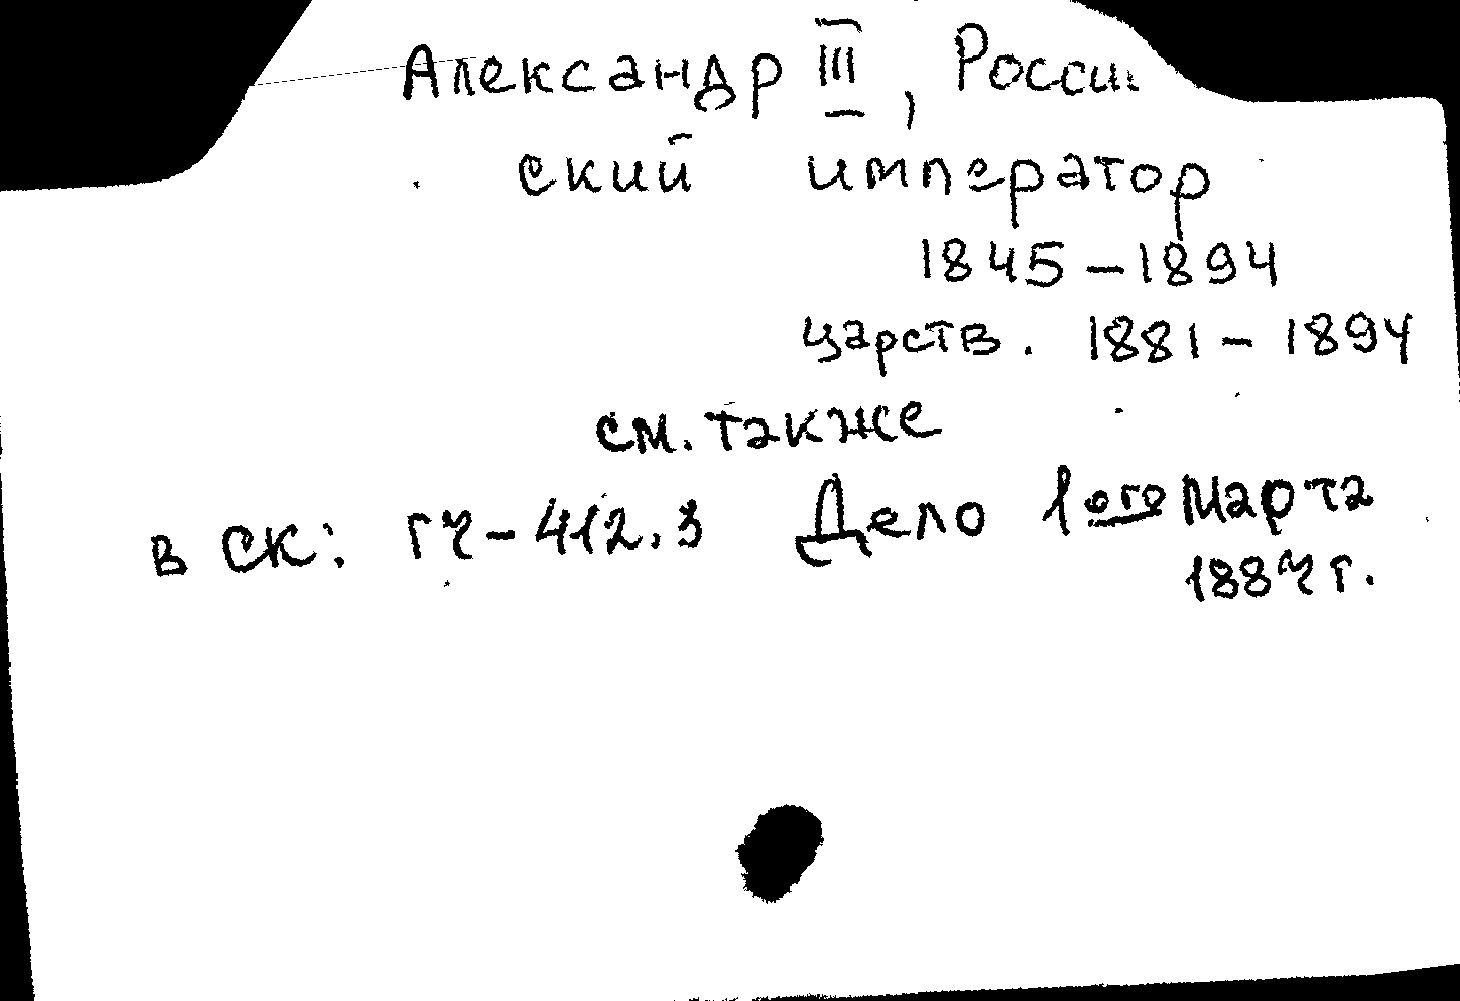 Александр III, Росси
ский император
1845 – 1894
царств. 1881 – 1894
см. также
в СК: ГЧ-412.3 Дело 1ого Марта
1887 г.